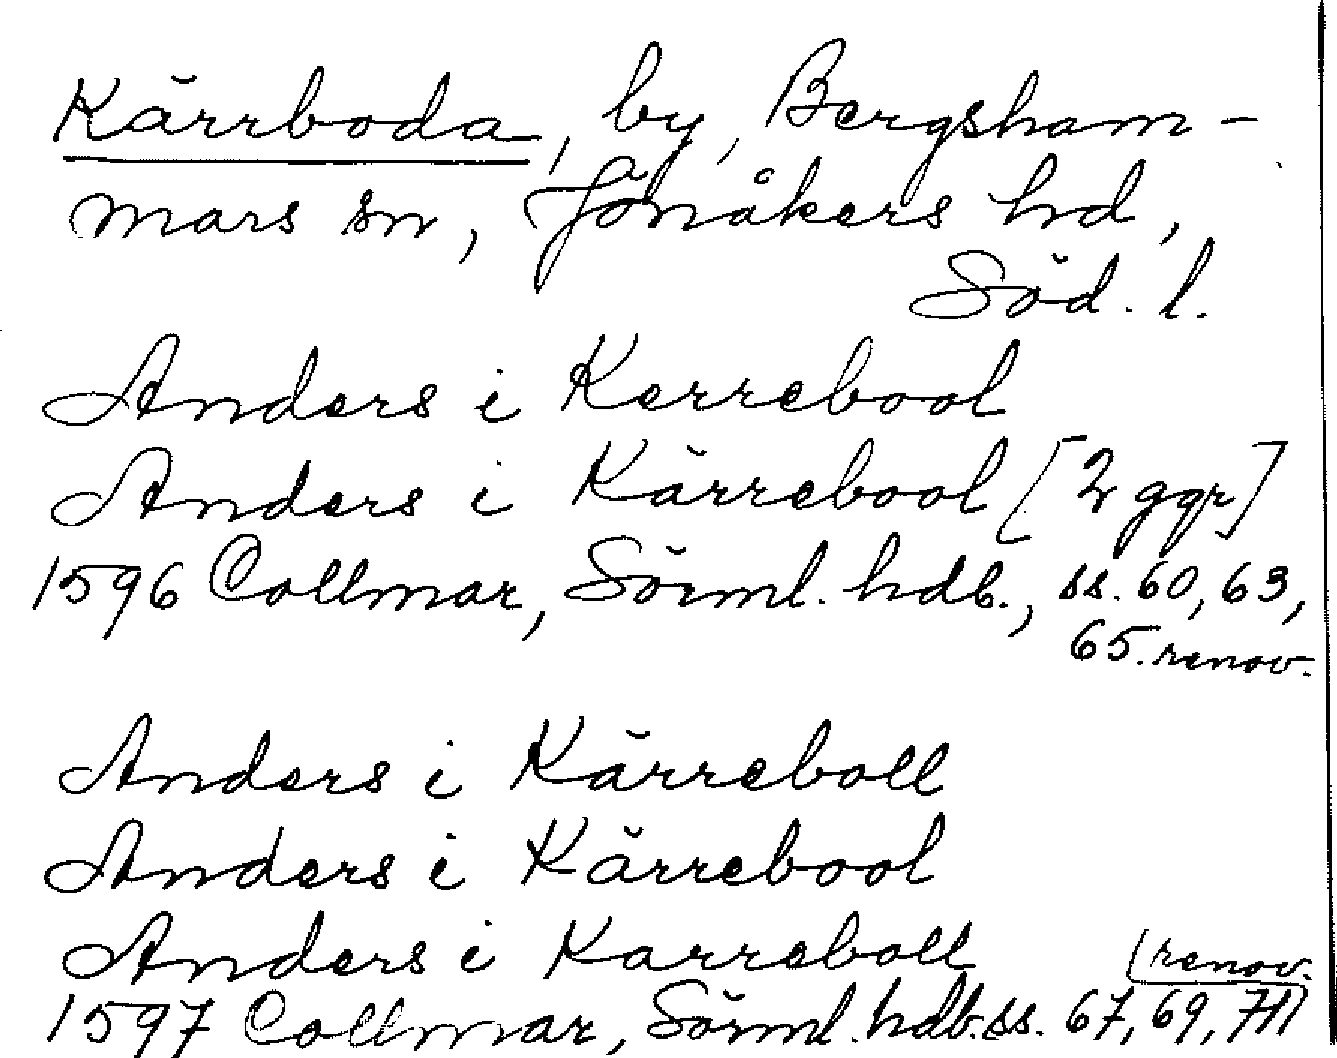 Kärrboda, by, Bergsham-
mars sn, Jönåkers hd,
Söd. l.
Anders i Kerrebool
Anders i Kärrebool [2 ggr]
1596 Collmar, Sörml. hdb., ss. 60, 63,
65. renov.
Anders i Kärreboll
Anders i Kärrebool
Anders i Karreboll
(renov.
1597 Collmar, Sörml. hdb. ss. 67, 69, 71